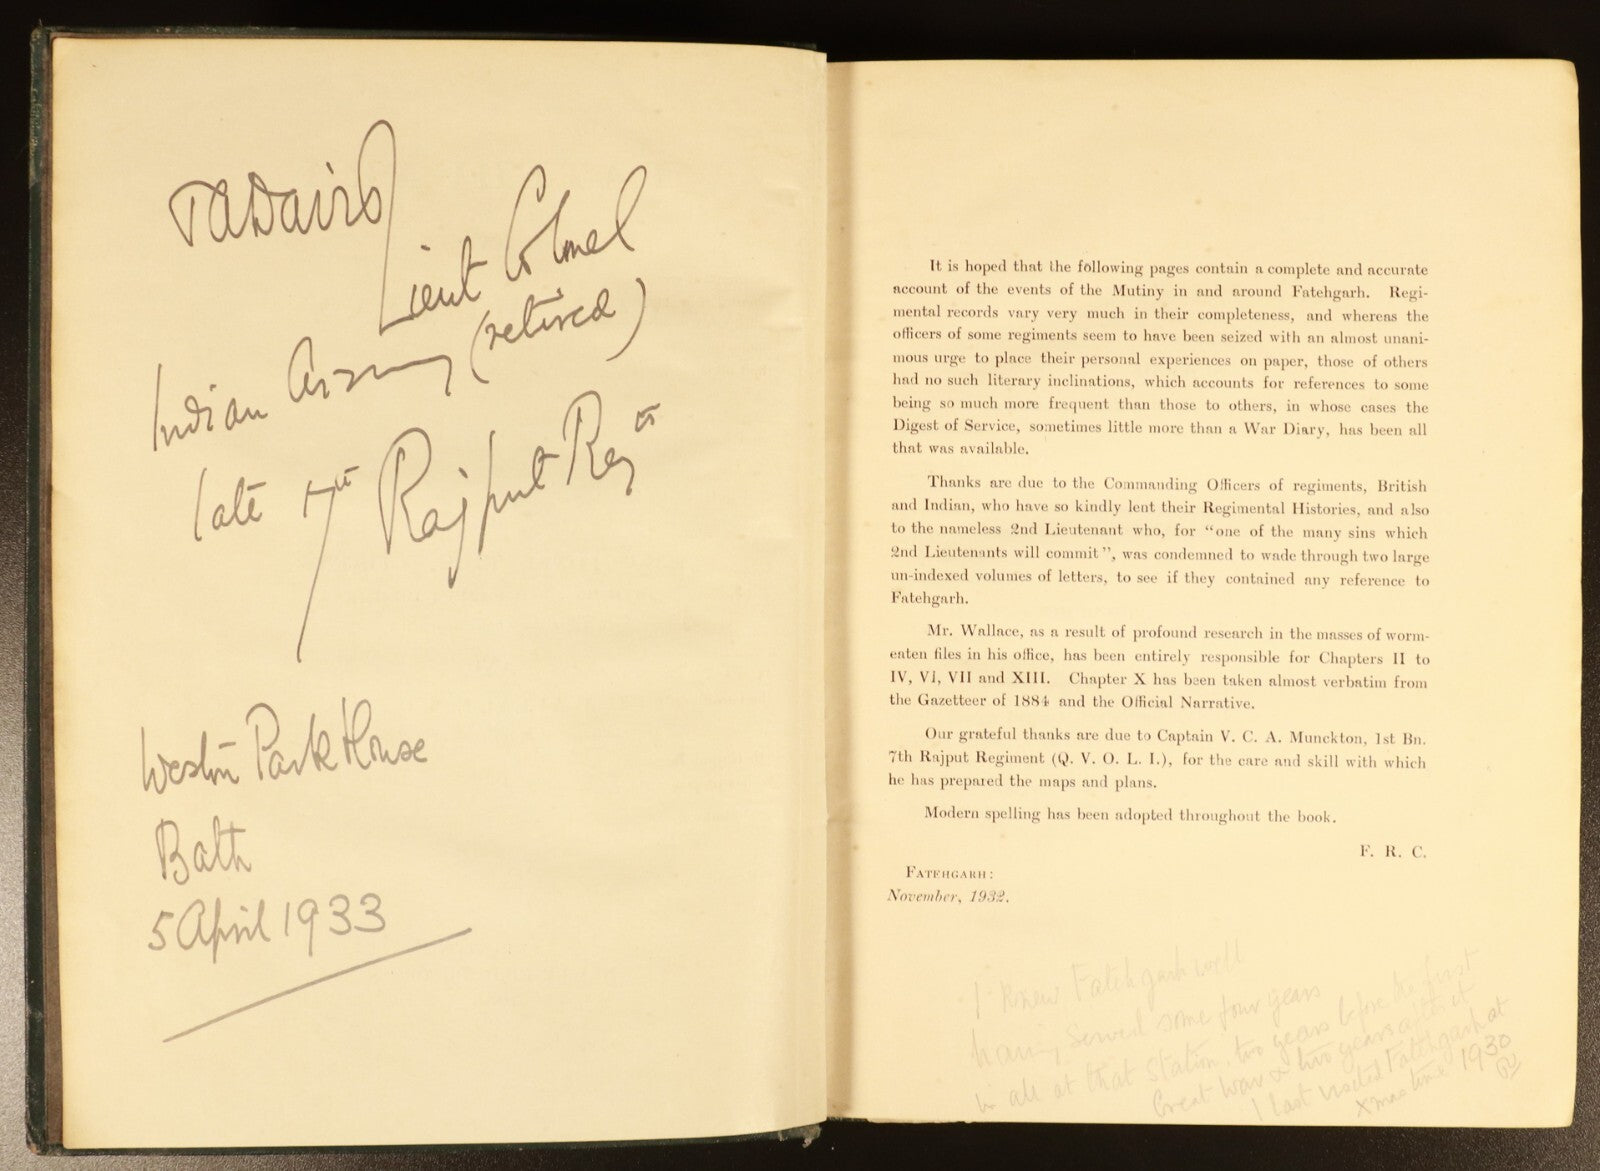 TADaird
Lieut Colonel
Indian Army (retired)
late 7th Rajput Regt
Weston Park House
Bath
5 April 1933
It is hoped that the following pages contain a complete and accurate
account of the events of the Mutiny in and around Fatehgarh. Regi-
mental records vary very much in their completeness, and whereas the
officers of some regiments seem to have been seized with an almost unani-
mous urge to place their personal experiences on paper, those of others
had no such literary inclinations, which accounts for references to some
being so much more frequent than those to others, in whose cases the
Digest of Service, sometimes little more than a War Diary, has been all
that was available.
Thanks are due to the Commanding Officers of regiments, British
and Indian, who have so kindly lent their Regimental Histories, and also
to the nameless 2nd Lieutenant who, for "one of the many sins which
2nd Lieutenants will commit", was condemned to wade through two large
un-indexed volumes of letters, to see if they contained any reference to
Fatehgarh.
Mr. Wallace, as a result of profound research in the masses of worm-
eaten files in his office, has been entirely responsible for Chapters II to
IV, VI, VII and XIII. Chapter X has been taken almost verbatim from
the Gazetteer of 1884 and the Official Narrative.
Our grateful thanks are due to Captain V. C. A. Munckton, 1st Bn.
7th Rajput Regiment (Q. V. O. L. I.), for the care and skill with which
he has prepared the maps and plans.
Modern spelling has been adopted throughout the book.
F. R. C.
FATEHGARH:
November, 1932.
I knew Fatehgarh well
having served some four years
in all at that station, two years before the first
Great War & two years after it
I last visited Fatehgarh at
Xmas time 1930